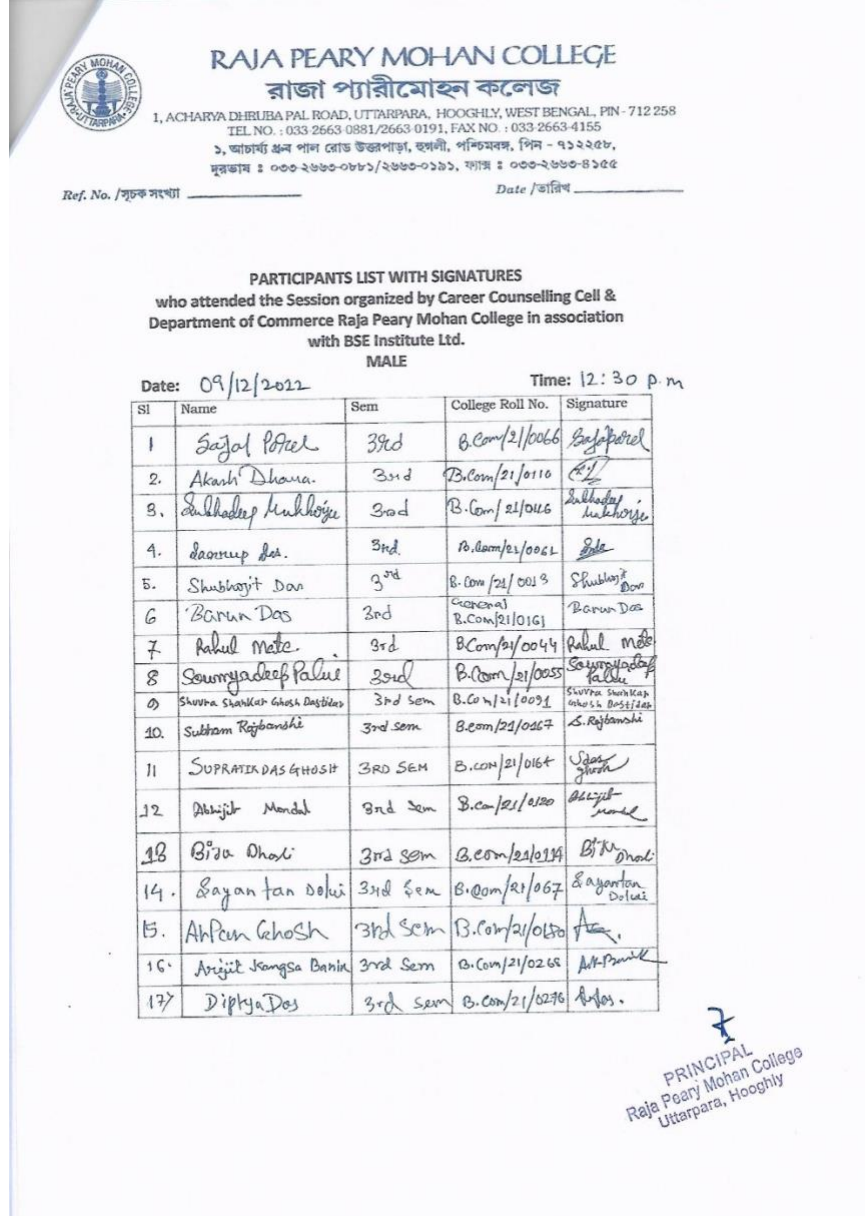 RAJA PEARY MOHAN COLLEGE
রাজা প্যারীমোহন কলেজ
1, ACHARYA DHRUBA PAL ROAD, UTTARPARA, HOOGHLY, WEST BENGAL, PIN - 712 258
TEL NO. : 033-2663-0881/2663-0191, FAX NO. : 033-2663-4155
১, আচার্য্য ধ্রুব পাল রোড উত্তরপাড়া, হুগলী, পশ্চিমবঙ্গ, পিন - ৭১২২৫৮,
দূরভাষ : ০৩৩-২৬৬৩-০৮৮১/২৬৬৩-০১৯১, ফ্যাক্স : ০৩৩-২৬৬৩-৪১৫৫
RAJA PEARY MOHAN COLLEGE UTTARPARA
Ref. No. /সূচক সংখ্যা Date /তারিখ
PARTICIPANTS LIST WITH SIGNATURES
who attended the Session organized by Career Counselling Cell &
Department of Commerce Raja Peary Mohan College in association
with BSE Institute Ltd.
MALE
Date: 09/12/2022 Time: 12:30 p.m
Sl Name Sem College Roll No. Signature
1 Sajal Porel 3rd B.Com/21/0066 Sajaporel
2. Akash Dhara. 3rd B.Com/21/0110
3. Subhadeep Mukherjee 3rd B.Com/21/0116 Subhadeep Mukherjee
4. das. 3rd. B.Com/21/0061
5. Shubhajit Das 3rd B.Com/21/0013 Shubhajit Das
6 Barun Das 3rd General B.Com/21/0161 Barun Das
7 Rahul Mete. 3rd B.Com/21/0044 Rahul Mete
8 Soumyadeep Palui 3rd B.Com/21/0055 Soumyadeep Palui
9 Shuvra Shankar Ghosh Dastidar 3rd sem B.Com/21/0091 Shuvra Shankar Ghosh Dastidar
10. Subham Rajbanshi 3rd sem B.com/21/0167 S. Rajbanshi
11 SUPRATIK DAS GHOSH 3RD SEM B.COM/21/0164 Sdas ghosh
12 Abhijit Mondal 3rd Sem B.Com/21/0120 Abhijit
13 Dhali 3rd sem B.com/21/0114 Dhali
14. Sayantan Dolui 3rd Sem B.Com/21/067 Sayantan Dolui
15. Arpan Ghosh 3rd Sem B.Com/21/0180
16. Arijit Kangsa Banik 3rd Sem B.Com/21/0268
17) Diptya Das 3rd sem B.Com/21/0276
PRINCIPAL
Raja Peary Mohan College
Uttarpara, Hooghly